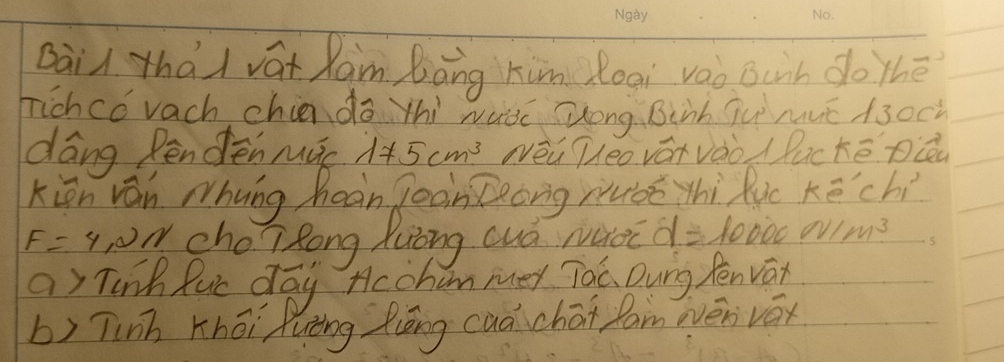 Ngày No.
Bài 1. thả 1 vật làm bằng kim loại vào bình đo thể
Tích có vạch chia độ thì nước trong Bình Từ mức 130cm
dâng lên đến mức 175cm³ nếu treo vật vào 1 lực kế Điều
kiện vẫn nhúng hoàn Toàn trong nước thì lực kế chỉ
F = 4,2N cho Trọng lượng của nước d = 10000 N/m³
a> Tính lực đẩy Acchimmet Tác Dụng lên vật
b> Tính khối lượng riêng của chất làm nên vật